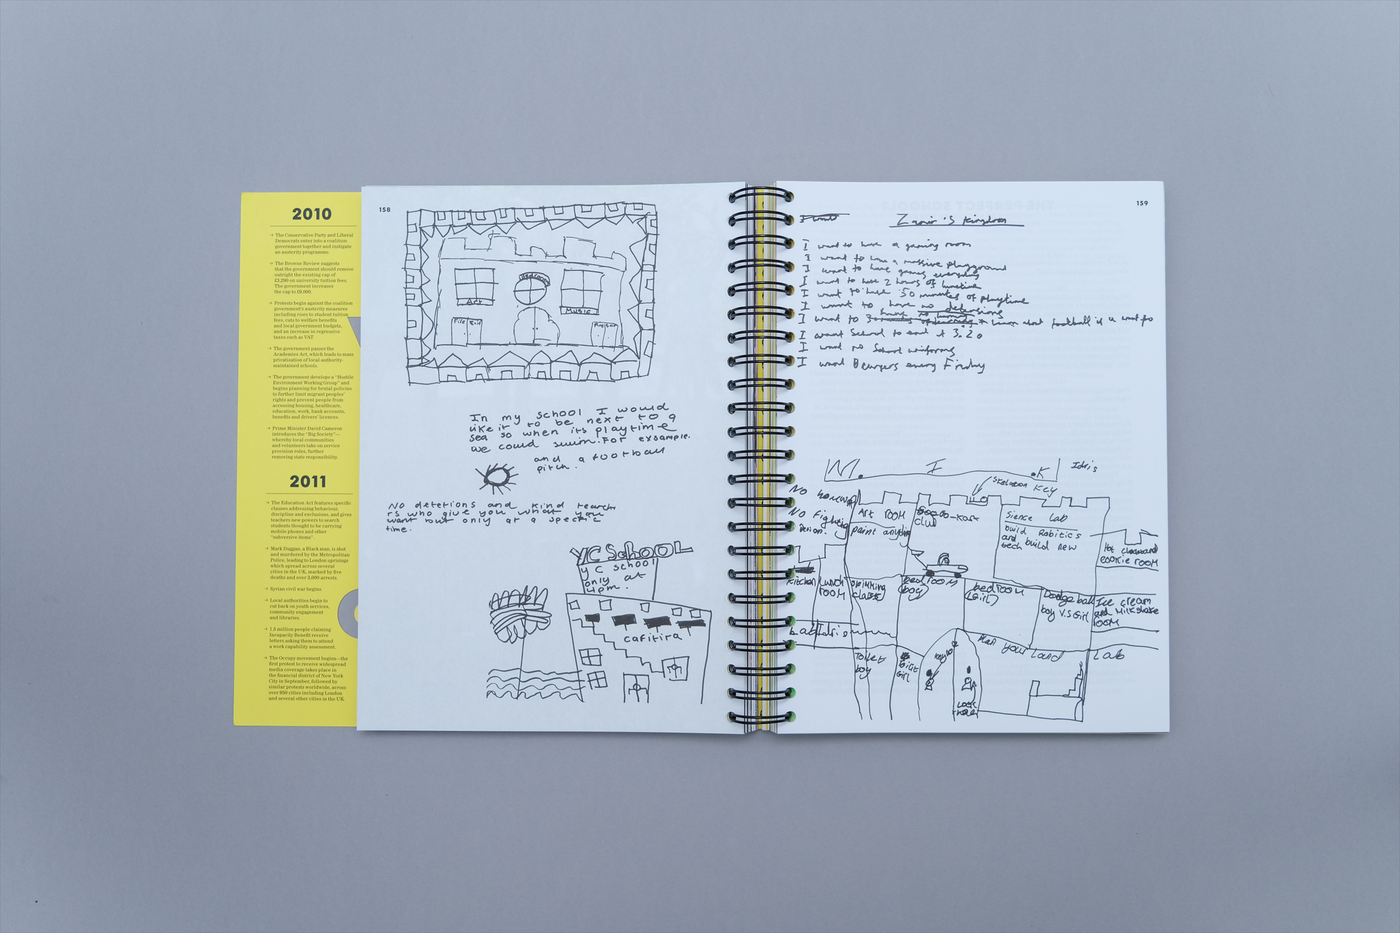 2010
→ The Conservative Party and Liberal
Democrats enter into a coalition
government together and instigate
an austerity programme.
→ The Browne Review suggests
that the government should remove
outright the existing cap of
£3,290 on university tuition fees.
The government increases
the cap to £9,000.
→ Protests begin against the coalition
government's austerity measures
including rises to student tuition
fees, cuts to welfare benefits
and local government budgets,
and an increase in regressive
taxes such as VAT.
→ The government passes the
Academies Act, which leads to mass
privatisation of local authority-
maintained schools.
→ The government develops a "Hostile
Environment Working Group" and
begins planning for brutal policies
to further limit migrant peoples'
rights and prevent people from
accessing housing, healthcare,
education, work, bank accounts,
benefits and drivers' licences.
→ Prime Minister David Cameron
introduces the "Big Society"—
whereby local communities
and volunteers take on service
provision roles, further
removing state responsibility.
2011
→ The Education Act features specific
clauses addressing behaviour,
discipline and exclusions, and gives
teachers new powers to search
students thought to be carrying
mobile phones and other
"subversive items".
→ Mark Duggan, a Black man, is shot
and murdered by the Metropolitan
Police, leading to London uprisings
which spread across several
cities in the UK, marked by five
deaths and over 3,000 arrests.
→ Syrian civil war begins.
→ Local authorities begin to
cut back on youth services,
community engagement
and libraries.
→ 1.5 million people claiming
Incapacity Benefit receive
letters asking them to attend
a work capability assessment.
→ The Occupy movement begins—the
first protest to receive widespread
media coverage takes place in
the financial district of New York
City in September, followed by
similar protests worldwide, across
over 950 cities including London
and several other cities in the UK.
158
Art
Music
In my school I would
like it to be next to a
sea so when its playtime
we could swim. For exsample.
and a football
pitch.
No detetions and kind teach
rs who give you what you
want but only at a specific
time.
YC School
YC school
only at
4pm.
cafitira
159
Zamir's Kingdom
I want to have a gaming room
I want to have a massive playground
I want to have games everyday
I want to have 2 hours of lunctime
I want to have 50 minutes of playtime
I want to have no detensions
I want to
I want School to end at 3:20
I want no School uniforms
I want Beurgers every Friday
M. I .K Idris
Skeleton Key
No homework
No Fighting
Art Room
paint anything
club
Sience Lab
build Robitics
and build new
tech
Hot
cookie room
Kitchen
Lunch
room
Swimming
classes
bed room
(boy)
bedroom
(girl)
Dodge ball
boy V.S Girl
Ice cream
and Milkshake
room
Toilet
boy
girl
Plan your Land
Lab
Lock